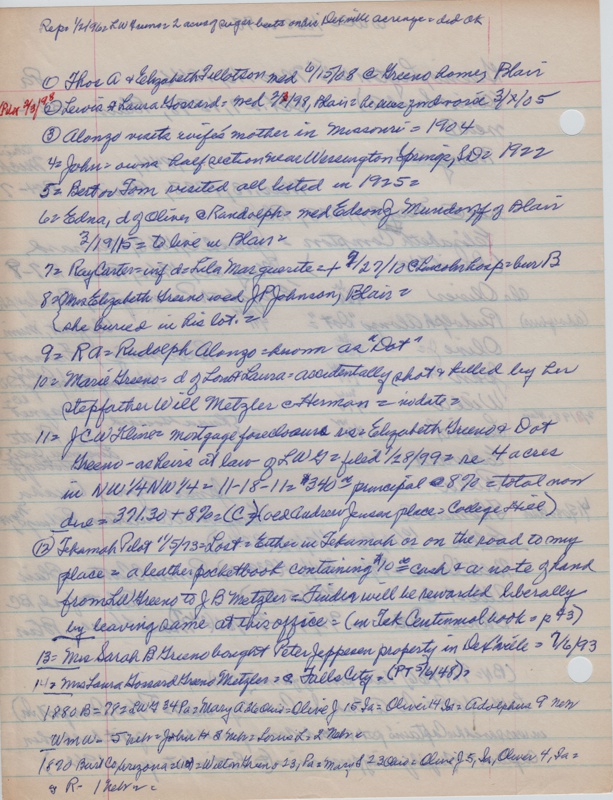 Reps 1/21/96 = LW Greeno = 2 acres of sugar beets on his DeSville acreage = did OK
① Thos A & Elizabeth Tillotson med 6/15/08 @ Greeno homes, Blair
Pilot 3/3/98 ② Lewis & Laura Gossard = med 98, Blair = he was 3/X/05
③ Alonzo visits wife's mother in Missouri = 1904
4 = John = owns half section near Wessington Springs, SD = 1922
5 = Bert or Tom visited all listed in 1925 =
6 = Edna, d of Oliver @ Randolph = med Edson J Mundorff of Blair
3/19/15 = to live in Blair =
7 = Ray Carter = inf d = Lila Marguarite = + 9/27/10 @ Lincoln hosp = bur B
8 = Mrs Elizabeth Greeno wed J P Johnson, Blair =
(she buried in his lot. =
9 = RA = Rudolph Alonzo = known as "Dot"
10 = Marie Greeno = d of Lon & Laura = accidentally shot & killed by her
stepfather Will Metzler @ Herman = no date =
11 = J C W Kline = mortgage foreclosure vs = Elizabeth Greeno & Dot
Greeno = as heirs at law of LWG = filed 1/28/99 = re 4 acres
in NW 1/4 NW 1/4 = 11-18-11 = $340 principal @ 8% = total now
due = 371.30 + 8% = (C ?) (old Andrew Jensen place = College Hill)
⑫ Tekamah Pilot 1/5/73 = Lost = Either in Tekamah or on the road to my
place = a leather pocketbook containing $10 cash & a note of hand
from LW Greeno to J B Metzler = Finder will be rewarded liberally
by leaving same at this office = (in Tek Centennial book = p 93)
13 = Mrs Sarah B Greeno bought Peter Jeppesen property in DeSville = 7/6/93
14 = Mrs Laura Gossard Greeno Metzler = @ Falls City = (PT 9/6/48) =
1880 B = 78 = LWG 34 Pa = Mary A 26 Ohio = Olive J 15 Ia = Oliver H Ia = Adolphus 9 Neb
Wm W = 5 Neb = John H 3 Neb = Lorin L = 2 Neb =
1870 Burt Co, Arizona = = Greeno 23, Pa = Mary 6 23 Ohio = Olive J 5, Ia, Oliver 4, Ia =
& R - 1 Neb =